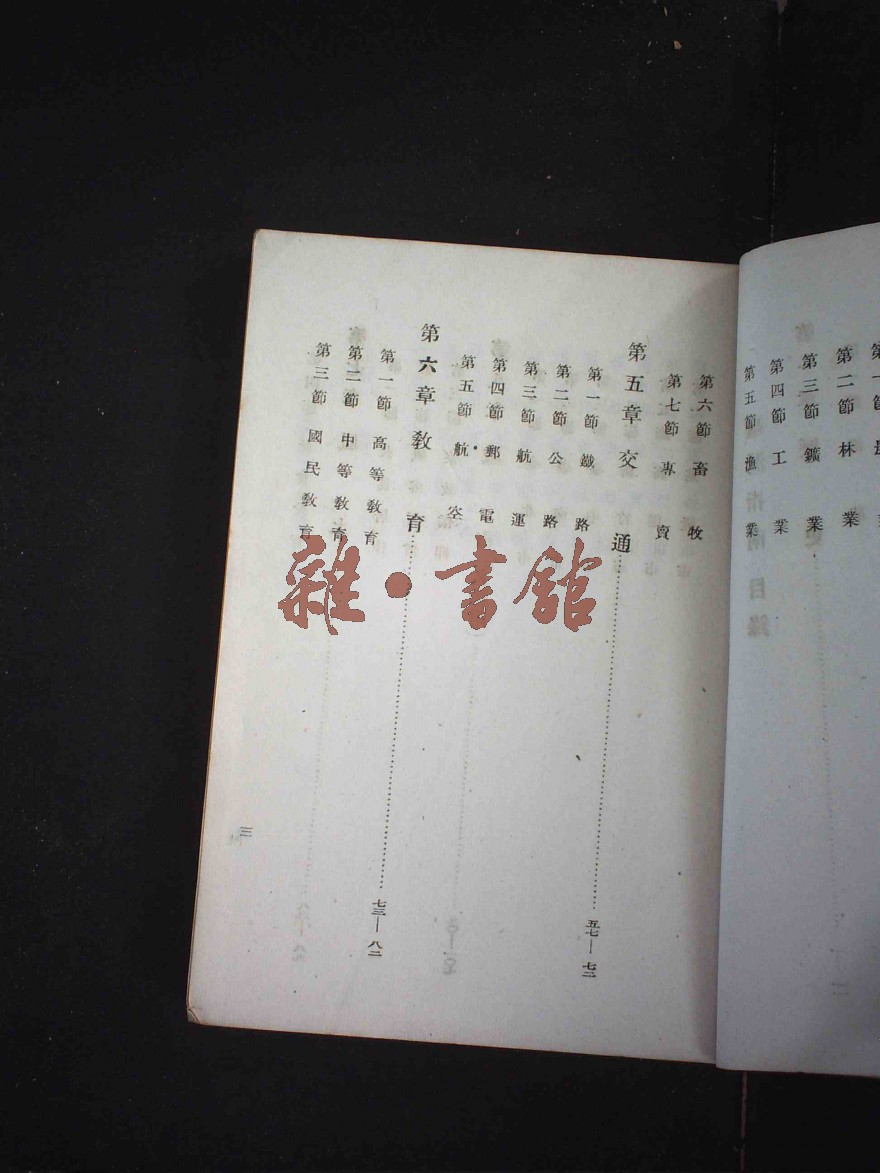 第二節 林 業
第三節 鑛 業
第四節 工 業
第五節 漁 業
第六節 畜 牧
第七節 專 賣
第五章 交 通……五七—七二
第一節 鐵 路
第二節 公 路
第三節 航 運
第四節 郵 電
第五節 航 空
第六章 敎 育……七三—八二
第一節 高等敎育
第二節 中等敎育
第三節 國民敎育
三
二
雜·書館